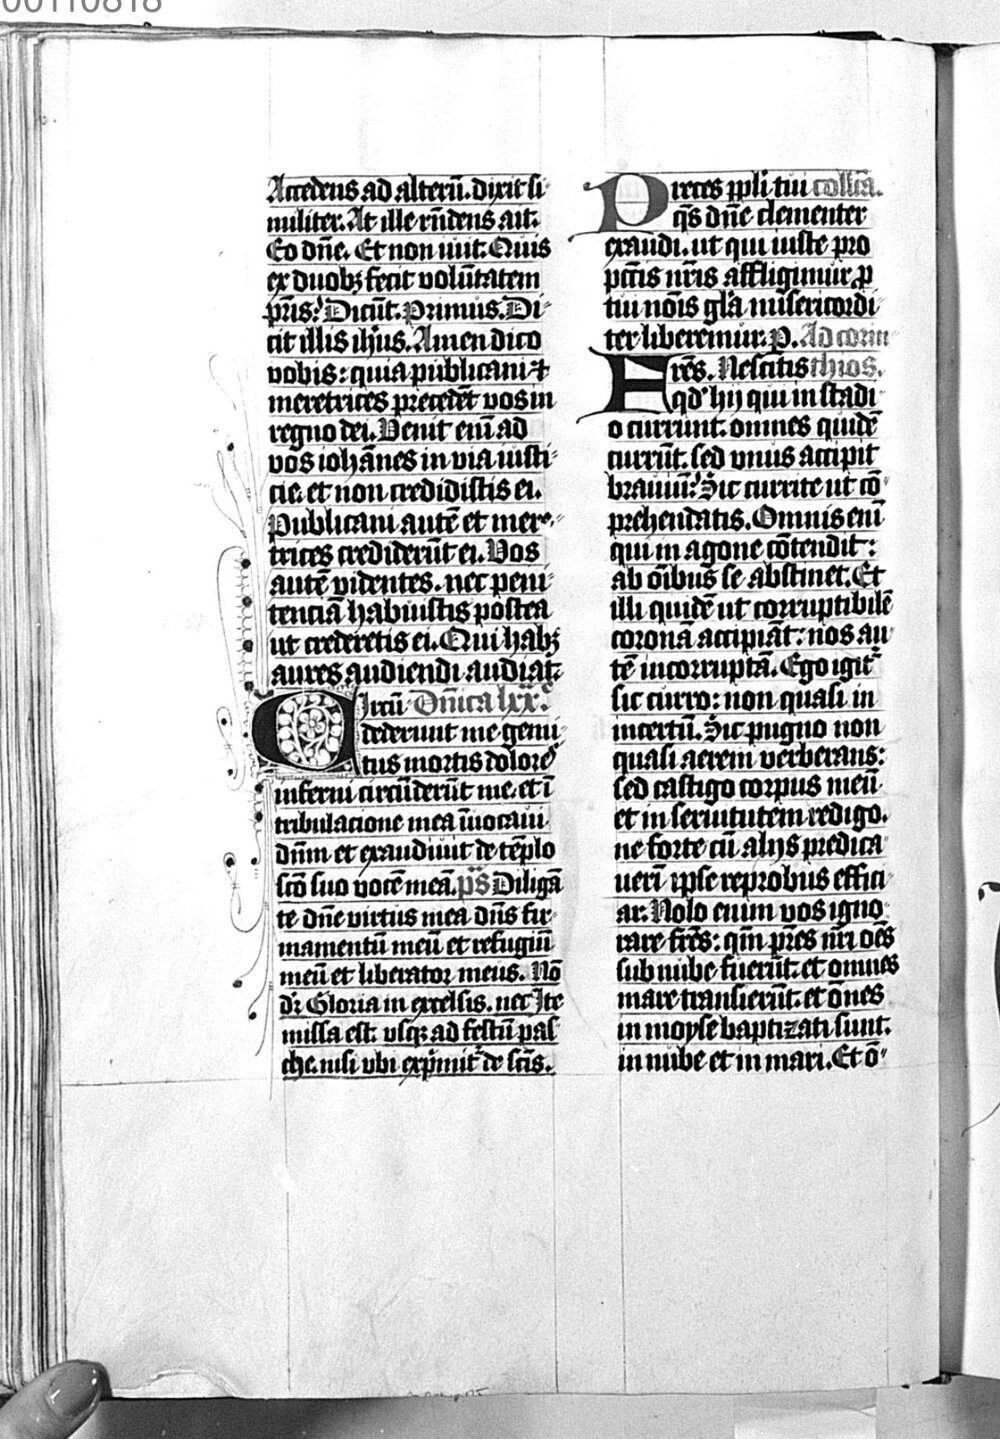 00110818
Accedens ad alterū. dixit si-
militer. At ille rn̄dens ait.
Eo dn̄e. Et non iuit. Quis
ex duobꝫ fecit volūtatem
pr̄is? Dicūt. Primus. Di-
cit illis ih̄us. Amen dico
vobis: quia publicani ⁊
meretrices precedēt vos in
regno dei. Venit enī ad
vos ioh̄annes in via iusti-
cie. et non credidistis ei.
Publicani autē et mere-
trices crediderūt ei. Vos
autē videntes. nec peni-
tenciā habuistis postea
ut crederetis ei. Qui habꝫ
aures audiendi audiat.
Circū Dn̄ica lxx.
dederunt me gemi-
tus mortis dolores
inferni circūderūt me. et ī
tribulacione mea īuocaui
dn̄m et exaudiuit de tēplo
scō suo vocē meā. p̄s Diligā
te dn̄e virtus mea dn̄s fir-
mamentū meū et refugiū
meū et liberator meus. Nō
dr̄. Gloria in excelsis. nec Ite
missa est. vsqꝫ ad festū pas-
che. nisi vbi exp̄mit̄ de scīs.
Preces ppl̄i tui collcā.
qs̄ dn̄e clementer
exaudi. ut qui iuste pro
pcc̄is nr̄is affligimur. ꝓ
tui nōis gl̄a misericordi-
ter liberemur. P. Ad corin-
Fres̄. Nescitis thios.
qd̓ hij qui in stadi-
o currunt. omnes quidē
currūt. sed vnus accipit
brauiū? Sic currite ut cō-
prehendatis. Omnis enī
qui in agone cōtendit:
ab oīb̄us se abstinet. Et
illi quidē ut corruptibilē
coronā accipiāt: nos au-
tē incorruptā. Ego igit̄
sic curro: non quasi in
incertū. Sic pugno non
quasi aerem verberans:
sed castigo corpus meū
et in seruitutem redigo.
ne forte cū alijs predica-
uerī ipse reprobus effici-
ar. Nolo enim vos igno-
rare frēs: qm̄ pr̄es nr̄i oēs
sub nube fuerūt. et omnes
mare transierūt. et ōnes
in moyse baptizati sunt.
in nube et in mari. Et ō-